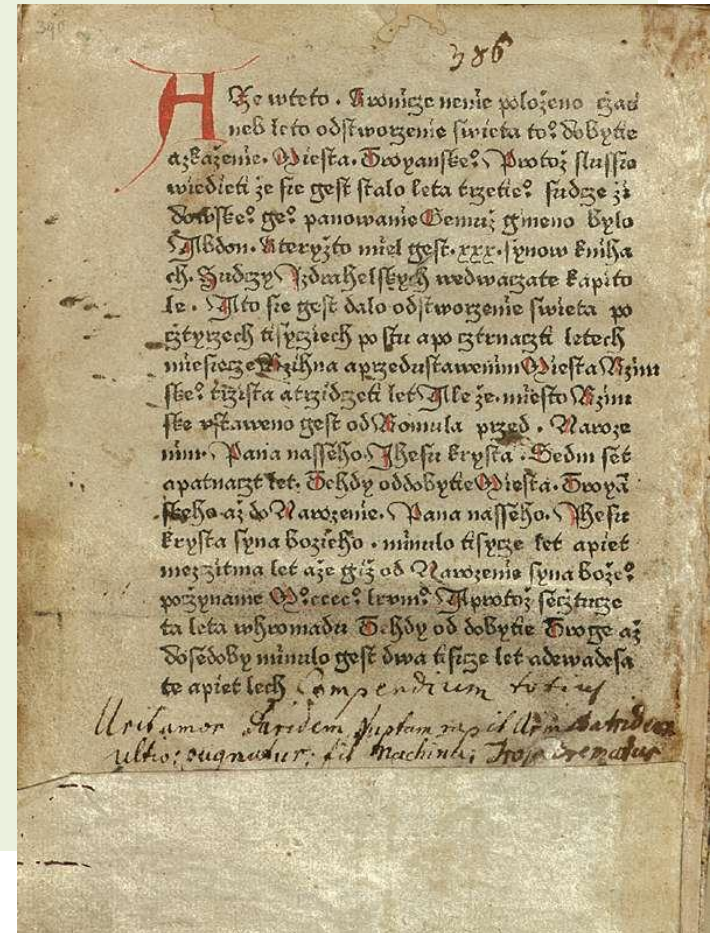 390
386
AZe wteto . Kronicze nenie polożeno cżas
neb leto odstworzenie swieta to? dobytie
azkażenie. Miesta. Troyanske? Protoż slussie
wiedieti że sie gest stalo leta trzetie? sudcze ži
dowske? ge? panowanie Gemuż gmeno bylo
Abdon. Kteryżto miel gest .xxx. synow kniha
ch. Sudczy Izdrahelskych wedwaczate kapito
le. Ato sie gest dalo odstworzenie swieta po
cżtyrzech tisycziech po stu apo cztrnaczti letech
miesiecze Rzihna aprzedustawenim Miesta Rzim
ske? trzista atrzidczeti let Ale że. miesto Rzim
ske vstaweno gest od Romula przed . Naroze
nim. Pana nasseho. Jhesu krysta . Sedm set
apatnaczt let. Tehdy oddobytie Miesta. Troyā
skeho aż do Narozenie. Pana nasseho. Jhesu
krysta syna bozieho . minulo tisycze let apiet
mezczitma let aże giż od Narozenie syna boże?
poczyname M?cccc? lxviii? Aprotoż secżtucze
ta leta whromadu Tehdy od dobytie Troge aż
dosedoby minulo gest dwa tisicze let adewadesa
te apiet lech Compendium totius
Urit amor Paridem nuptam rapit Armat Atriden
ultio: pugnatur: fit Machina: Troja crematur